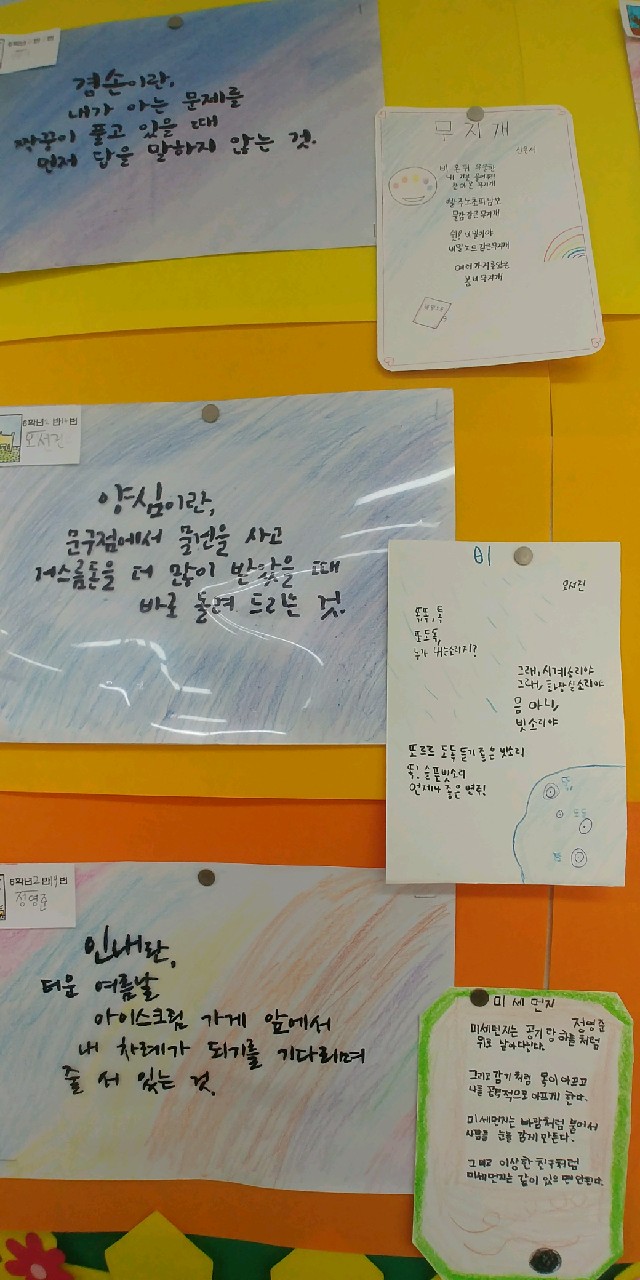 겸손이란,
내가 아는 문제를
짝꿍이 풀고 있을 때
먼저 답을 말하지 않는 것.
무지개
물감같은 무지개
봄비 무지개
6학년 반 번
오서진
양심이란,
문구점에서 물건을 사고
거스름돈을 더 많이 받았을 때
바로 돌려 드리는 것.
비
오서진
뚝뚝, 톡
또도독,
누가 내는소리지?
그래, 시계소리야
그래, 화장실소리야
음 아냐,
빗소리야
또르르 도독 듣기 좋은 빗소리
뚝! 슬픈빗소리
언제나 좋은 변주!
6학년 2반 19번
정영준
인내란,
더운 여름날
아이스크림 가게 앞에서
내 차례가 되기를 기다리며
줄 서 있는 것.
미세먼지
정영준
미세먼지는 공기 땅 하늘처럼
위로 날아다닌다.
그리고 감기처럼 목이 아프고
나를 공격적으로 아프게 한다.
미세먼지는 바람처럼 불어서
사람을 눈을 감게 만든다.
그리고 이상한 친구처럼
미세먼지는 같이 있으면 안된다.